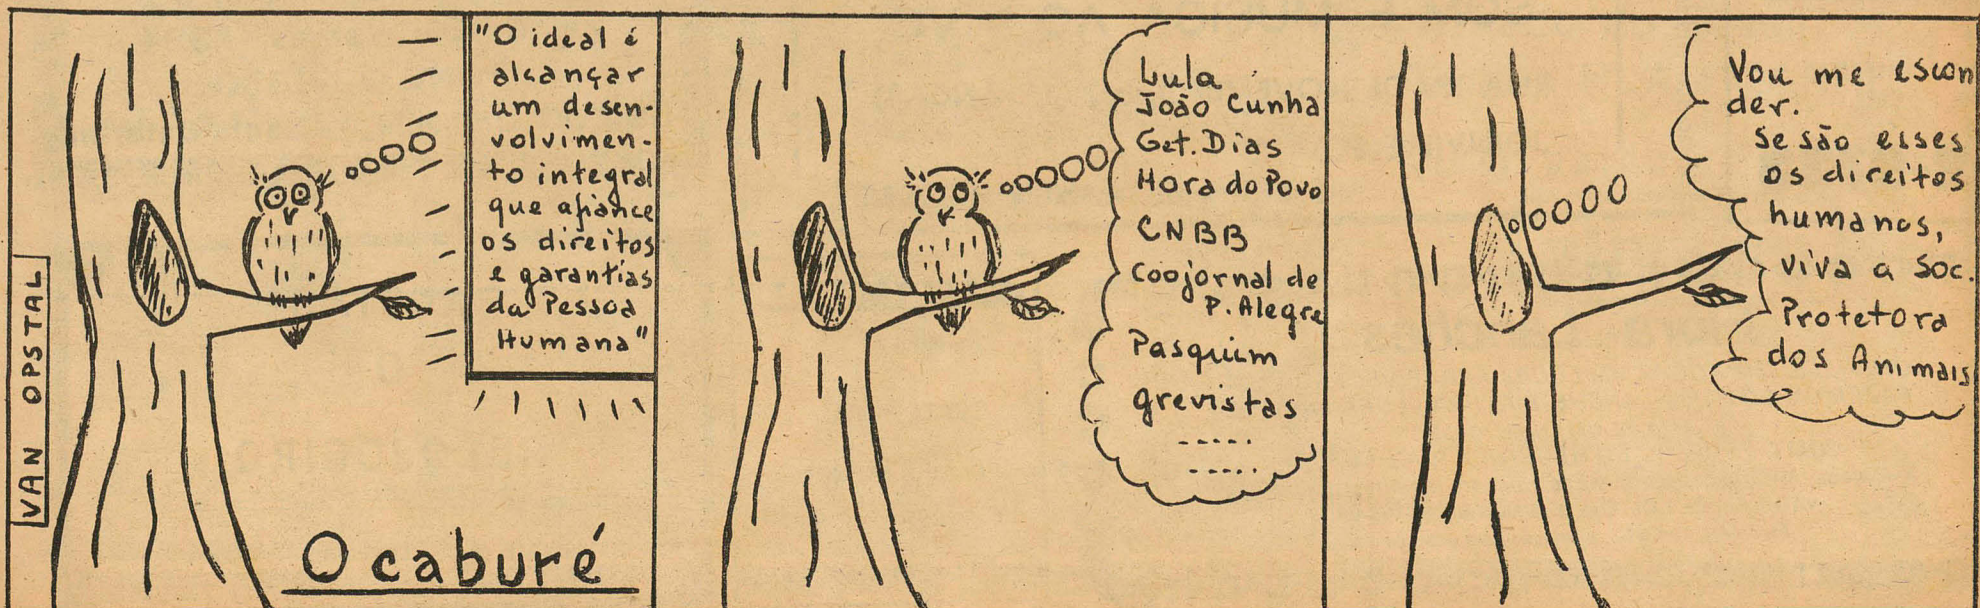 VAN OPSTAL
"O ideal é
alcançar
um desen-
volvimen-
to integral
que afiance
os direitos
e garantias
da Pessoa
Humana"
O caburé
Lula
João Cunha
Get. Dias
Hora do Povo
CNBB
Coojornal de
P. Alegre
Pasquim
grevistas
.....
.....
Vou me escon
der.
Se são esses
os direitos
humanos,
viva a Soc.
Protetora
dos Animais